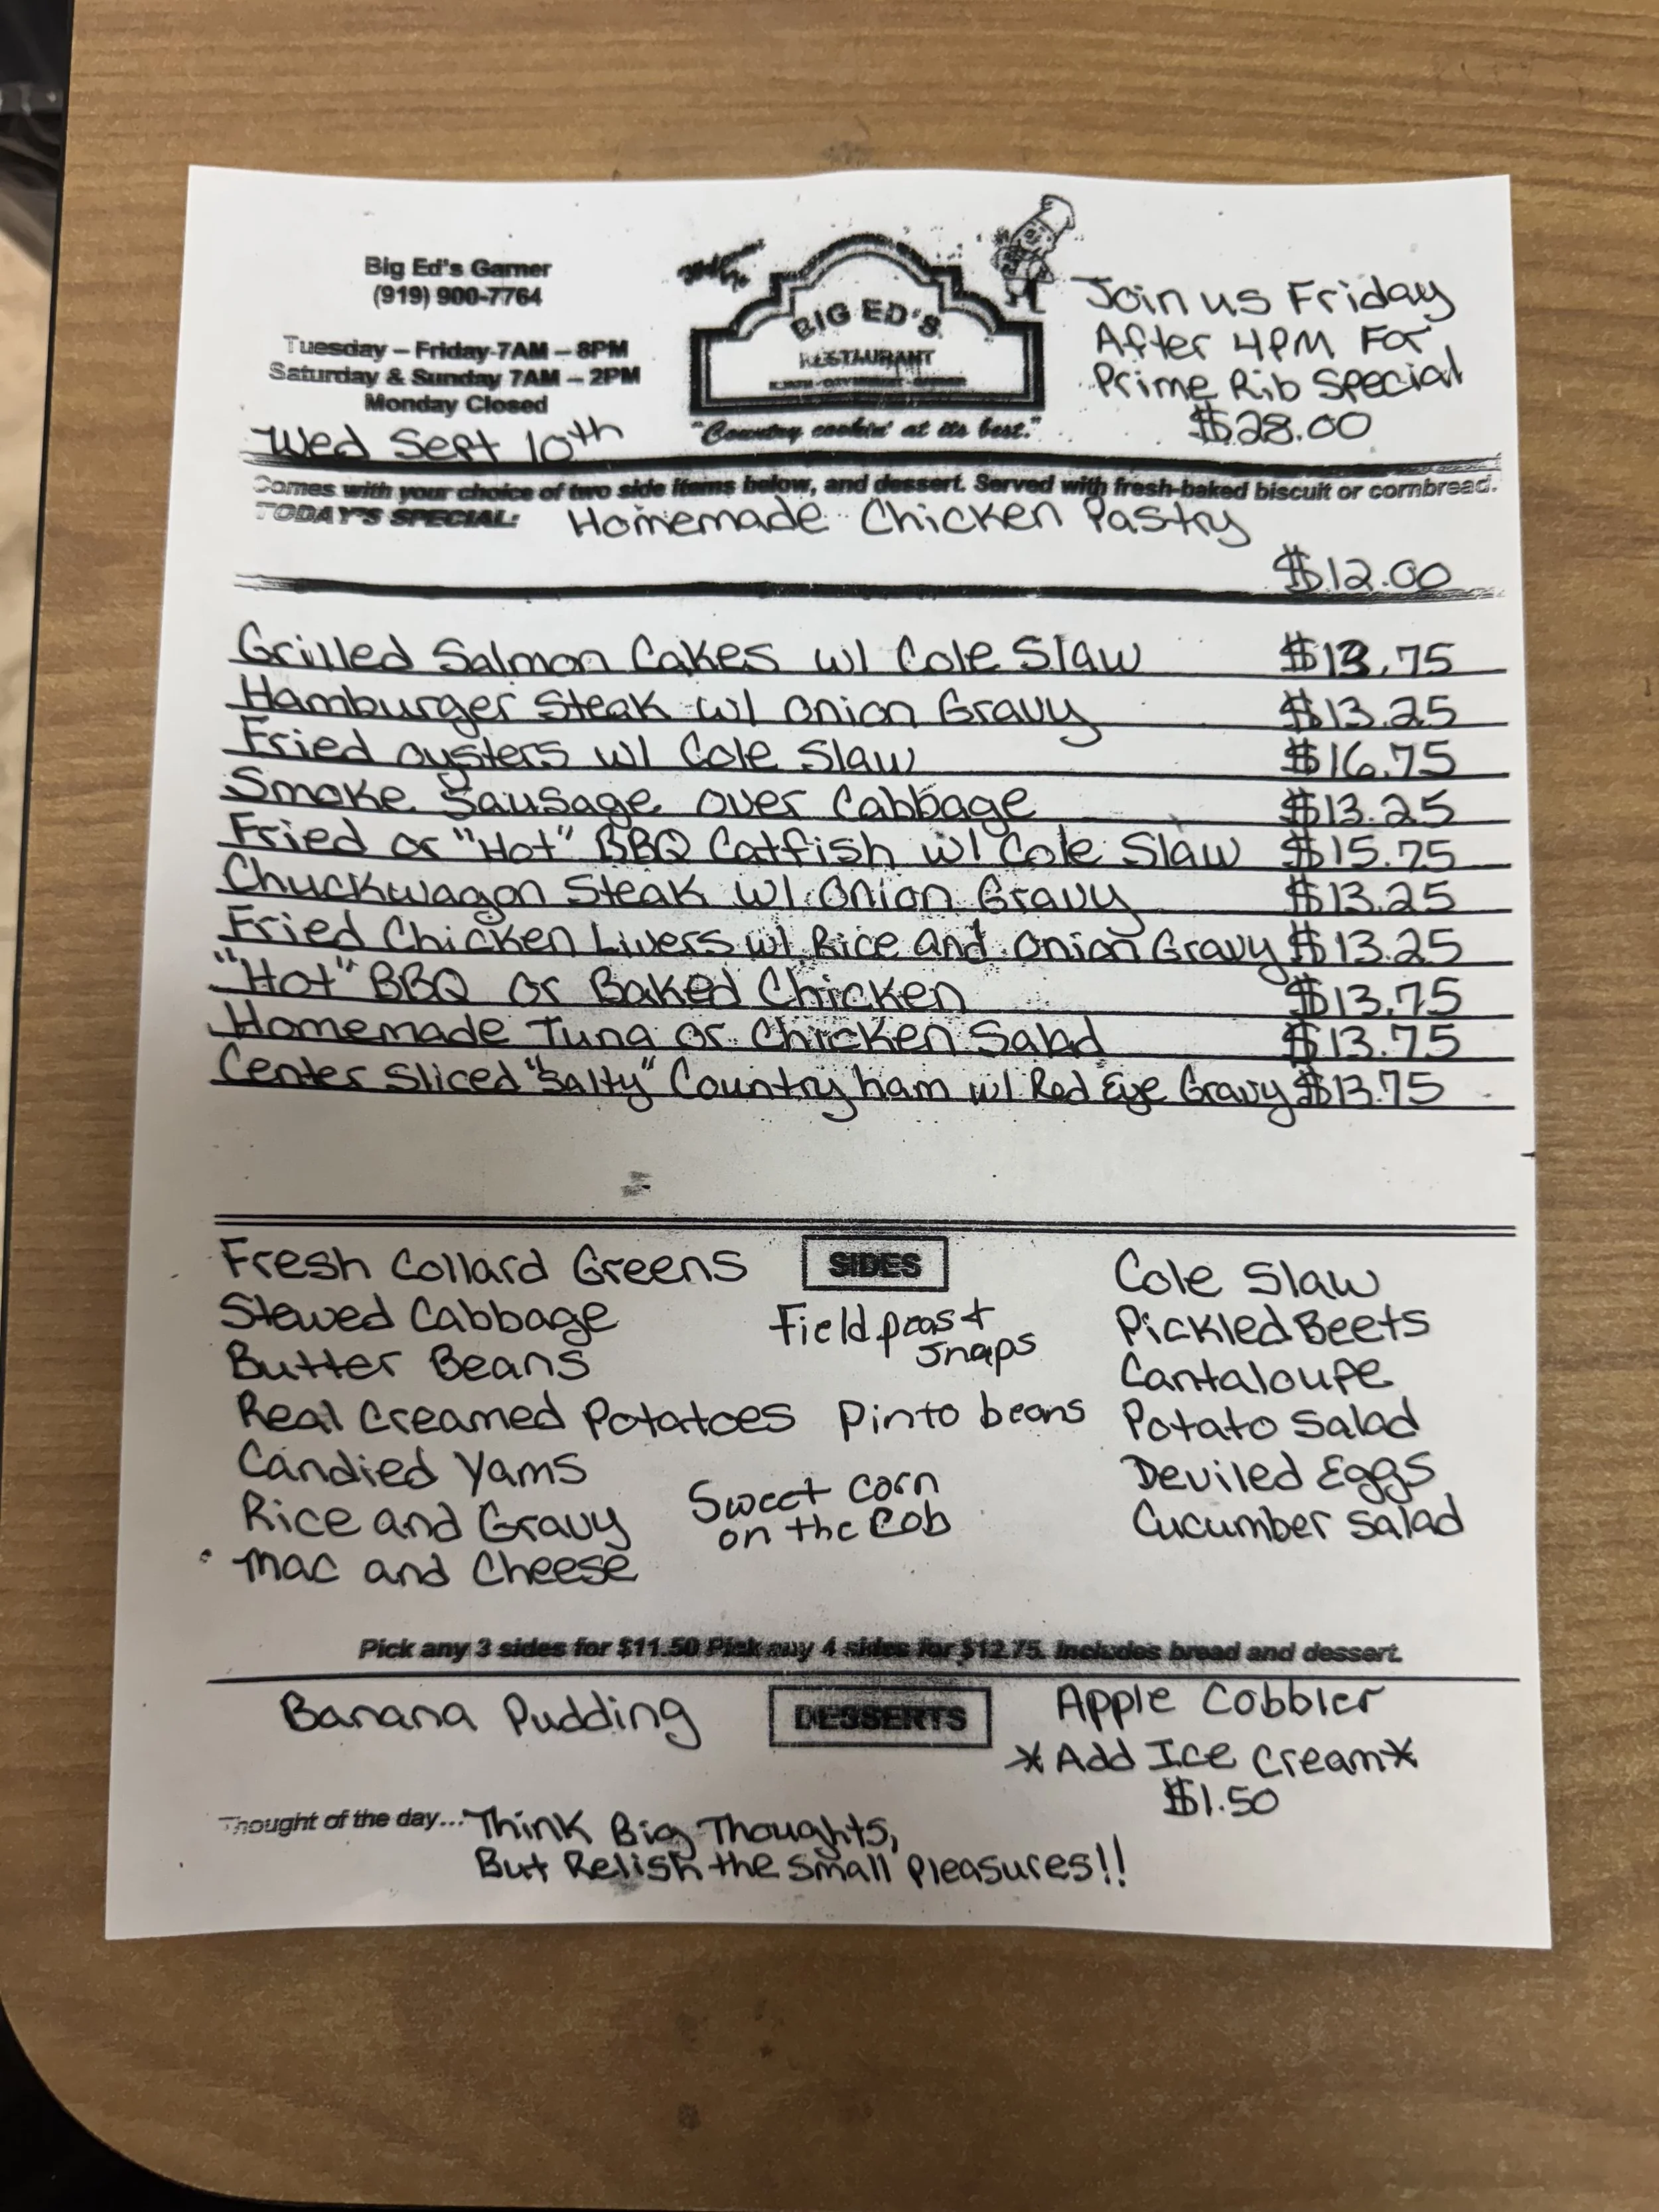 Big Ed's Garner
(919) 900-7764
Tuesday – Friday 7AM – 8PM
Saturday & Sunday 7AM – 2PM
Monday Closed
Wed Sept 10th
BIG ED'S
RESTAURANT
"Country cookin' at its best."
Join us Friday
After 4PM For
Prime Rib Special
$28.00
Comes with your choice of two side items below, and dessert. Served with fresh-baked biscuit or cornbread.
TODAY'S SPECIAL: Homemade Chicken Pastry
$12.00
Grilled Salmon Cakes w/ Cole Slaw $13.75
Hamburger Steak w/ Onion Gravy $13.25
Fried oysters w/ Cole Slaw $16.75
Smoke Sausage over Cabbage $13.25
Fried or "Hot" BBQ Catfish w/ Cole Slaw $15.75
Chuckwagon Steak w/ Onion Gravy $13.25
Fried Chicken Livers w/ Rice and Onion Gravy $13.25
"Hot" BBQ or Baked Chicken $13.75
Homemade Tuna or Chicken Salad $13.75
Center Sliced "Salty" Country ham w/ Red Eye Gravy $13.75
SIDES
Fresh Collard Greens
Stewed Cabbage
Butter Beans
Real Creamed Potatoes
Candied Yams
Rice and Gravy
Mac and Cheese
Field peas +
snaps
Pinto beans
Sweet corn
on the Cob
Cole Slaw
Pickled Beets
Cantaloupe
Potato Salad
Deviled Eggs
Cucumber Salad
Pick any 3 sides for $11.50 Pick any 4 sides for $12.75. Includes bread and dessert.
DESSERTS
Banana Pudding
Apple Cobbler
*Add Ice Cream*
$1.50
Thought of the day... Think Big Thoughts,
But Relish the Small Pleasures!!